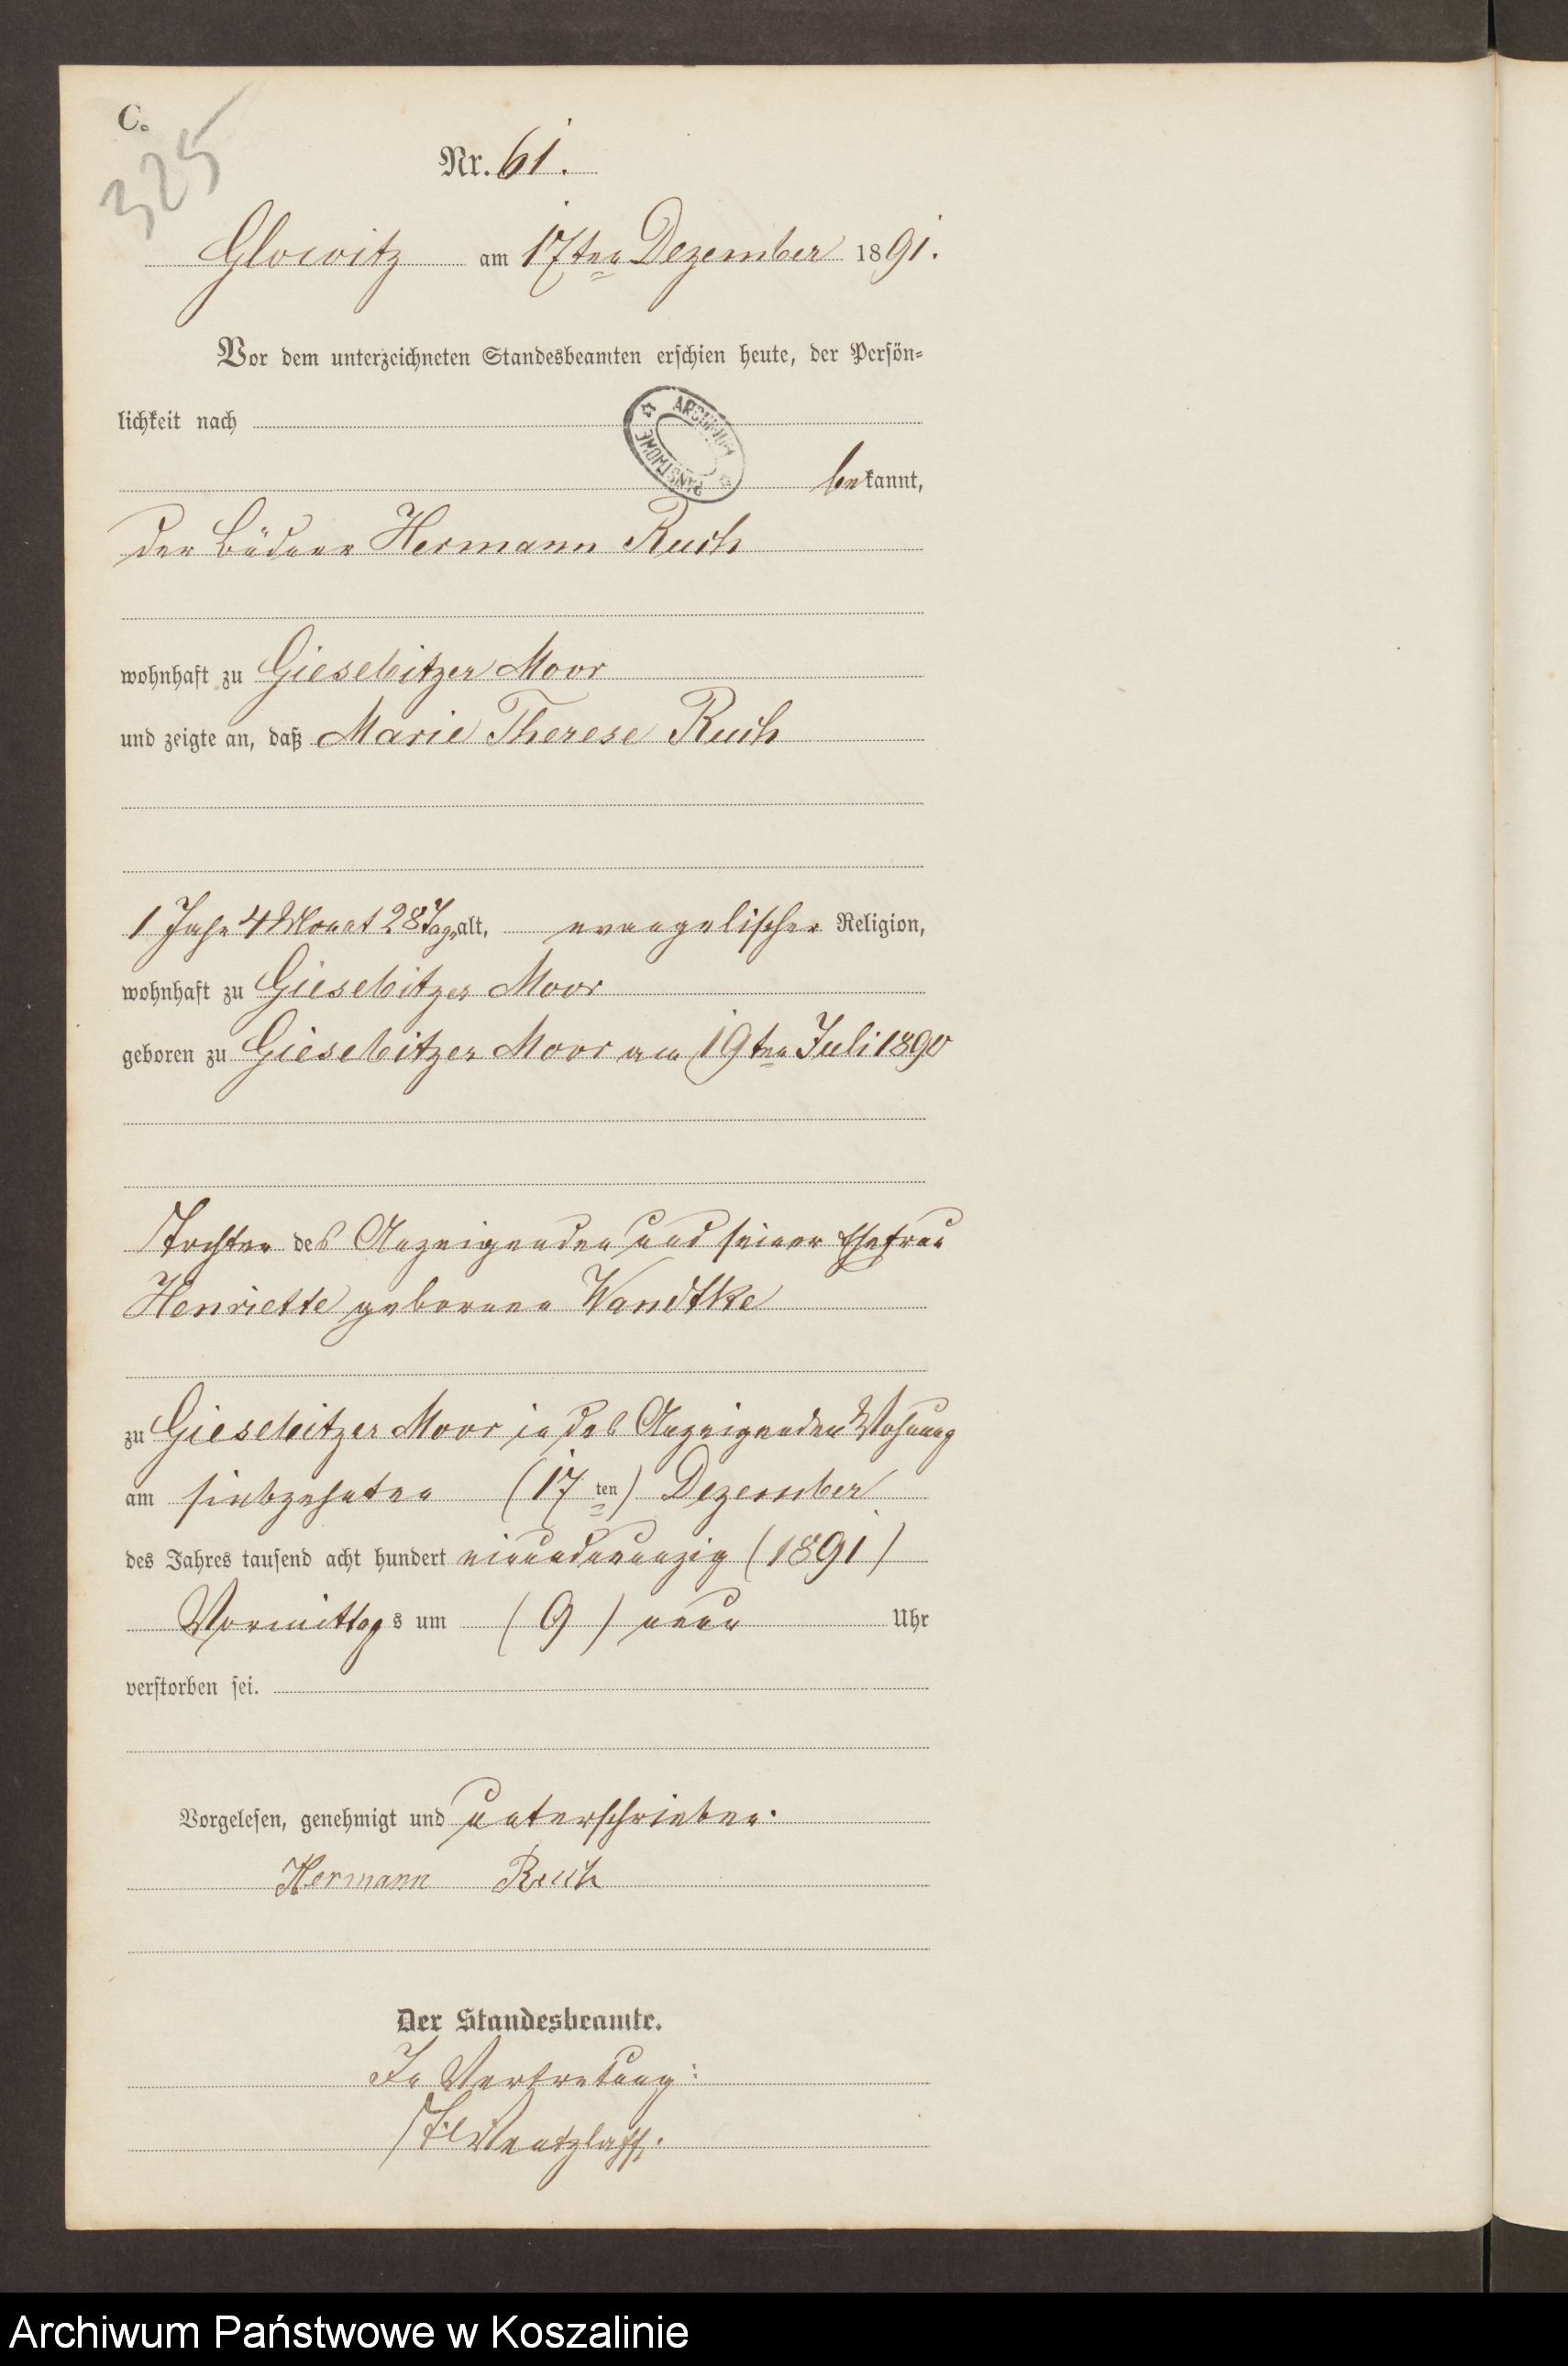 C.
325
Nr. 61.
Glowitz am 17ten Dezember 1891.
Vor dem unterzeichneten Standesbeamten erschien heute, der Persön-
lichkeit nach
ARCHIWUM PAŃSTWOWE
bekannt,
der Büdner Hermann Ruch
wohnhaft zu Giesebitzer Moor
und zeigte an, daß Marie Therese Ruch
1 Jahr 4 Monat 28 Tage alt, evangelischer Religion,
wohnhaft zu Giesebitzer Moor
geboren zu Giesebitzer Moor am 19ten Juli 1890
Tochter des Anzeigenden und seiner Ehefrau
Henriette geborene Wandtke
zu Giesebitzer Moor in des Anzeigenden Wohnung
am siebzehnten (17ten) Dezember
des Jahres tausend acht hundert einundneunzig (1891)
Vormittags um (9) neun Uhr
verstorben sei.
Vorgelesen, genehmigt und unterschrieben.
Hermann Ruch
Der Standesbeamte.
In Vertretung:
Wentzlaff.
Archiwum Państwowe w Koszalinie